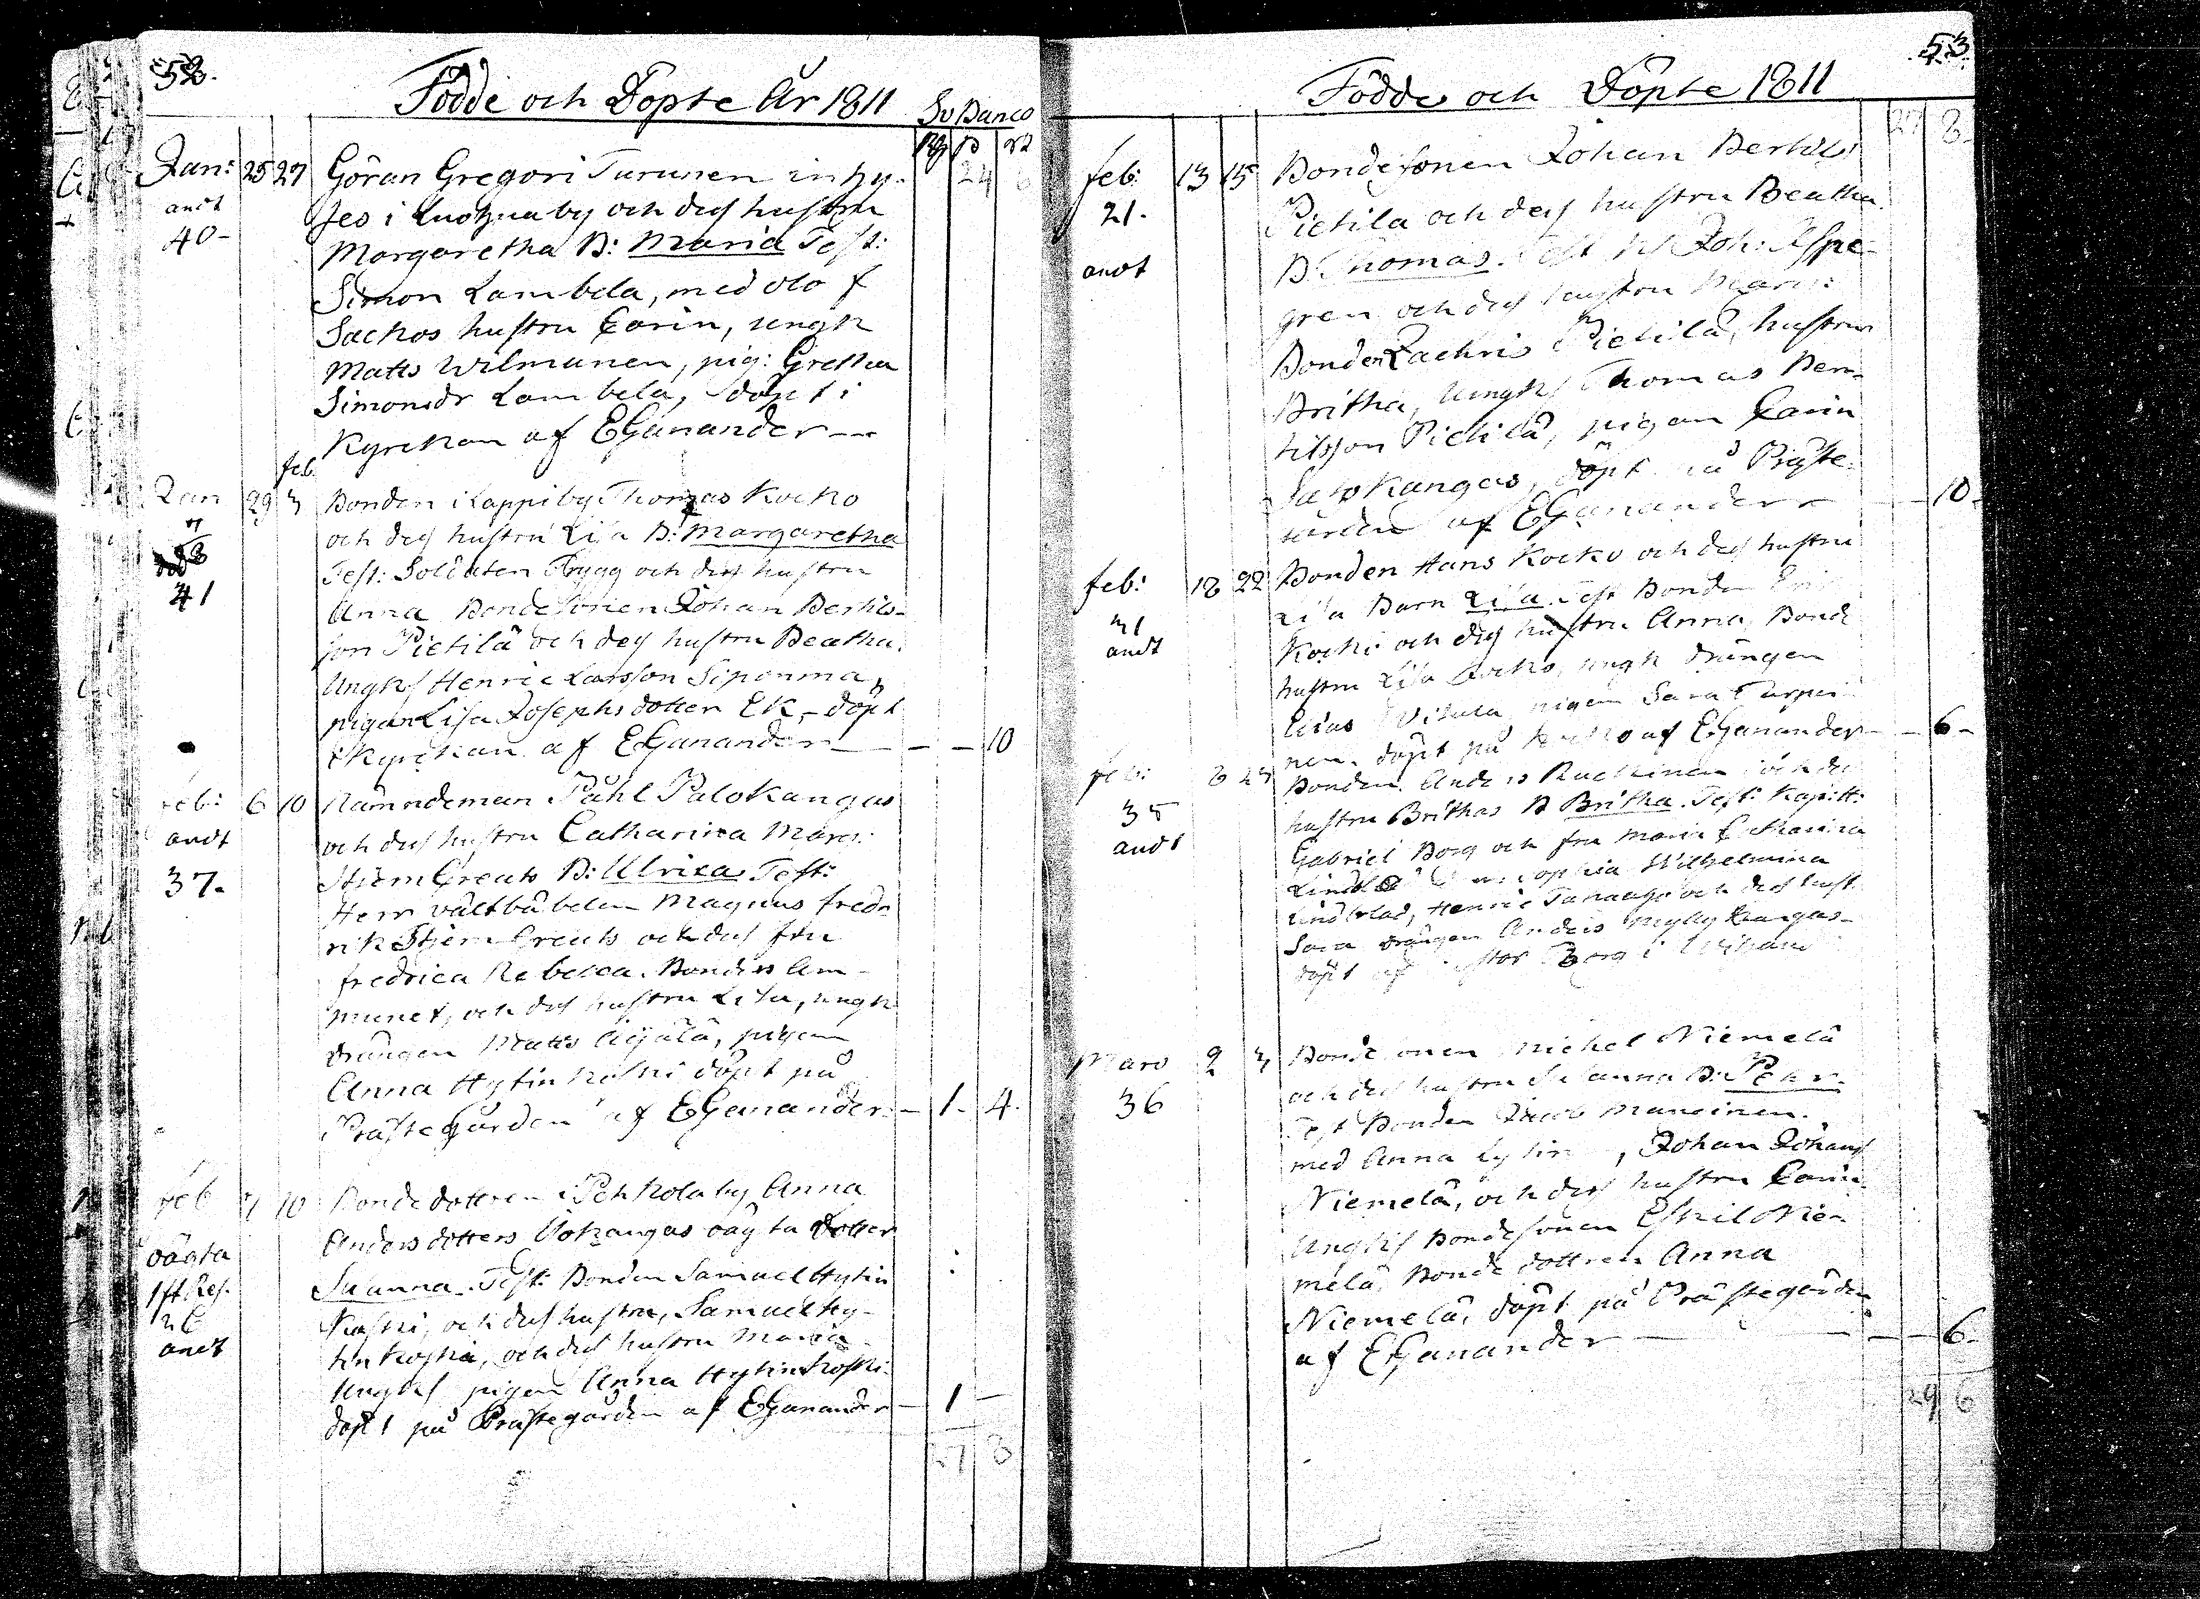 52.
Födde och Döpte År 1811
Sv Banco
Rg ß rs
Jan: 25 27 Göran Gregori Turunen inhy-
andt
40-
ses i Luohuaby och dess hustru
Margaretha B: Maria Test:
Simon Lambela, med Olof
Sackos hustru Carin, ungk
Matts Wilmunen, pig: Gretha
Simonsdr Lambela, döpt i
Kyrckan af EGanander
feb.
Jan 29 3 Bonden i Lappiby Thomas Kocko
och dess hustru Lisa B: Margaretha
41
Test: Soldaten Trygg och dess hustru
Anna Bondesonen Johan Bertils-
son Pietilä och dess hustru Beatha.
Ungks Henric Larsson Siponma,
pigan Lisa Josephsdotter Ek, döpt
i Kyrckan af EGanander - - 10
feb: 6 10 Nämndeman Påhl Palokangas
andt
37.
och dess hustru Catharina Marg:
StjernCreuts B: Ulrica Test:
Herr Vältbübelen Magnus fred-
rik StjernCreuts och dess fru
fredrica Rebecca. Bonden Am-
munet, och dess hustru Lisa, ungk
drängen Matts Äijälä, pigan
Anna Hytinkoski döpt på
PrästeGården af EGanander - 1. 4.
feb 7 10 Bondedottren i Pehkolaby Anna
oägta
andt
Anders dotters Ojokangas oägta dotter
Susanna. Test: Bonden Samuel Hytin
Koski, och dess hustru, Samuel Hy-
tinkoski, och dess hustru Maria
Ungks pigan Anna Hytinkoski.
döpt på Prästegården af EGanander - 1 -
27 8
53
Födde och Döpte 1811
27 8
feb: 13 15 Bondesonen Johan Bertils:
21.
andt
Pietila och dess hustru Beatha
B. Thomas. Test Joh: Espe-
gren och dess hustru Maria:
Bonden Zachris Pietilä, hustrun
Britha, Ungks Thomas Ber-
tilsson Pietilä, pigan Carin
Salokangas, döpt på Präste-
gården af EGanander - 10-
feb: 18 22 Bonden Hans Kocko och dess hustru
andt
Lisa Barn Lisa. Test Bonden
Kocko och dess hustru Anna, Bond
hustru Lisa Kocko, ungk drängen
Elias pigan Sara Turpei
nen. döpt på Kocko af EGanander - 6-
feb: Bonden Anders Ruckinen och dess
35
andt
hustru Brithas B Britha. Test: Kapitt:
Gabriel Borg och fru Maria Catharina
Sophia Wilhelmina
Lindblad, Henric och dess hust
Sara drängen Anders Myllykangas-
döpt af Borg i
Mars 2 3 Bondesonen Michel Niemelä
36
och dess hustru Susanna B: Pehr.
Test Bonden Jacob Maneinen.
med Anna, Johan Johans
Niemelä, och dess hustru Carin.
Ungks Bondesonen Eskil Nie-
melä, Bonde dottren Anna
Niemelä, döpt på Prästegården
af EGanander - 6-
29 6